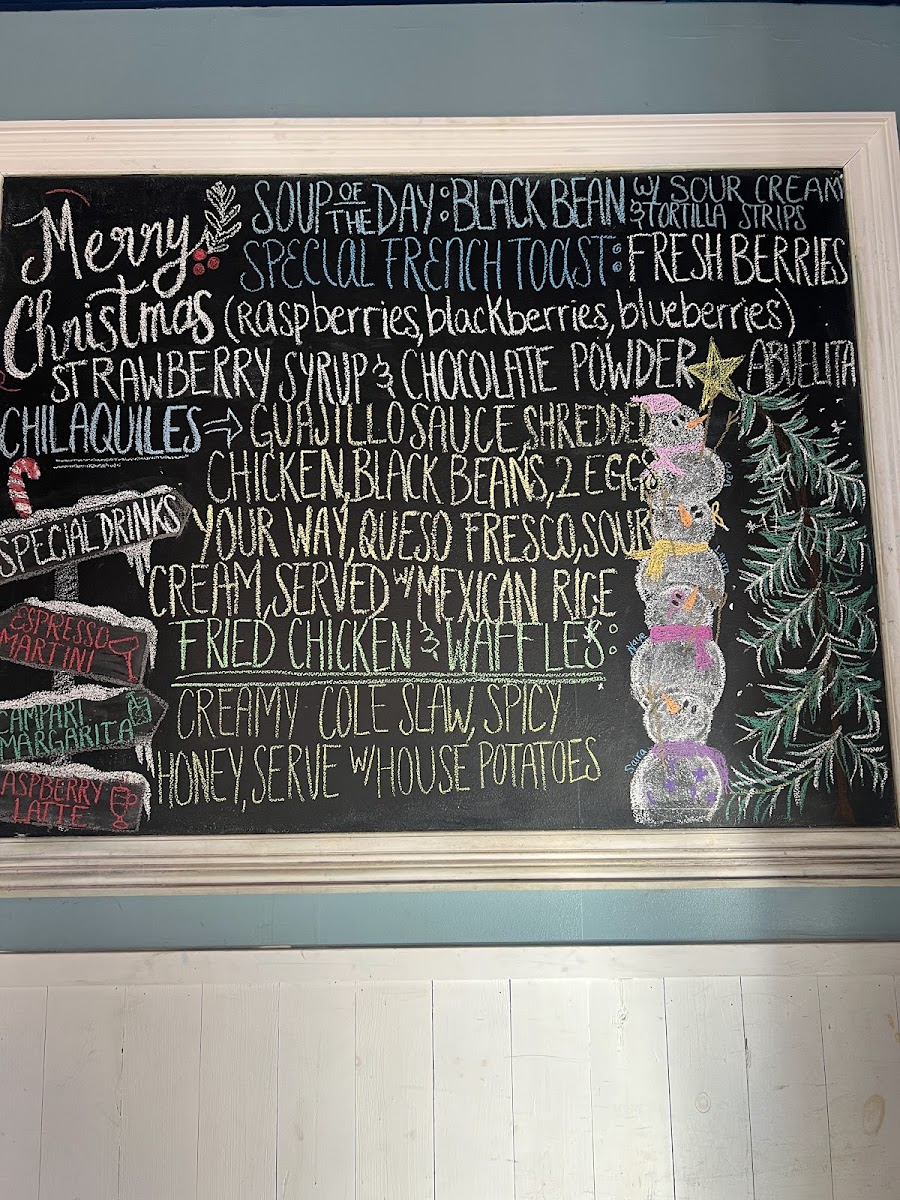 Merry
Christmas
SOUP OF THE DAY: BLACK BEAN W/ SOUR CREAM
& TORTILLA STRIPS
SPECIAL FRENCH TOAST: FRESH BERRIES
(raspberries, blackberries, blueberries)
STRAWBERRY SYRUP & CHOCOLATE POWDER ABUELITA
CHILAQUILES → GUAJILLO SAUCE, SHREDDED
CHICKEN, BLACK BEANS, 2 EGGS
YOUR WAY, QUESO FRESCO, SOUR
CREAM, SERVED W/ MEXICAN RICE
FRIED CHICKEN & WAFFLES:
CREAMY COLE SLAW, SPICY
HONEY, SERVE W/ HOUSE POTATOES
SPECIAL DRINKS
ESPRESSO
MARTINI
CAMPARI
MARGARITA
ASPBERRY
LATTE
Naye
Sara